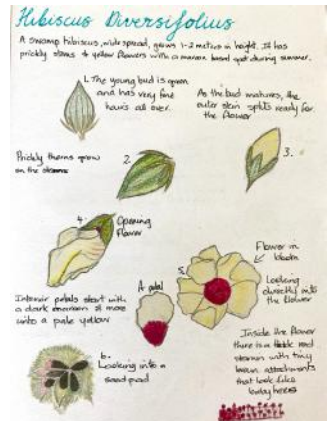 Hibiscus Diversifolius
A swamp hibiscus, widespread, grows 1-2 meters in height. It has
prickly stems & yellow flowers with a maroon basal spot during summer.
1. The young bud is green
and has very fine
hairs all over.
As the bud matures, the
outer skin splits ready for
the flower
Prickly thorns grow
on the stems
2.
3.
4.
Opening
flower
Flower in
bloom
Looking
directly into
the flower
5.
A petal
Interior petals start with
a dark maroon & move
into a pale yellow
6.
Looking into a
seed pod
Inside the flower
there is a red
stamen with tiny
attachments
that look like